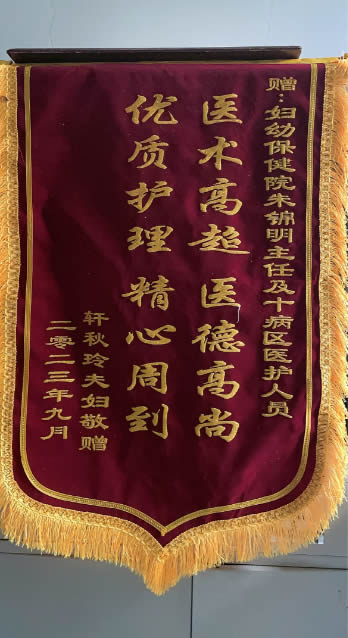 赠:妇幼保健院朱锦明主任及十病区医护人员
医术高超 医德高尚
优质护理 精心周到
轩秋玲夫妇敬赠
二零二三年九月